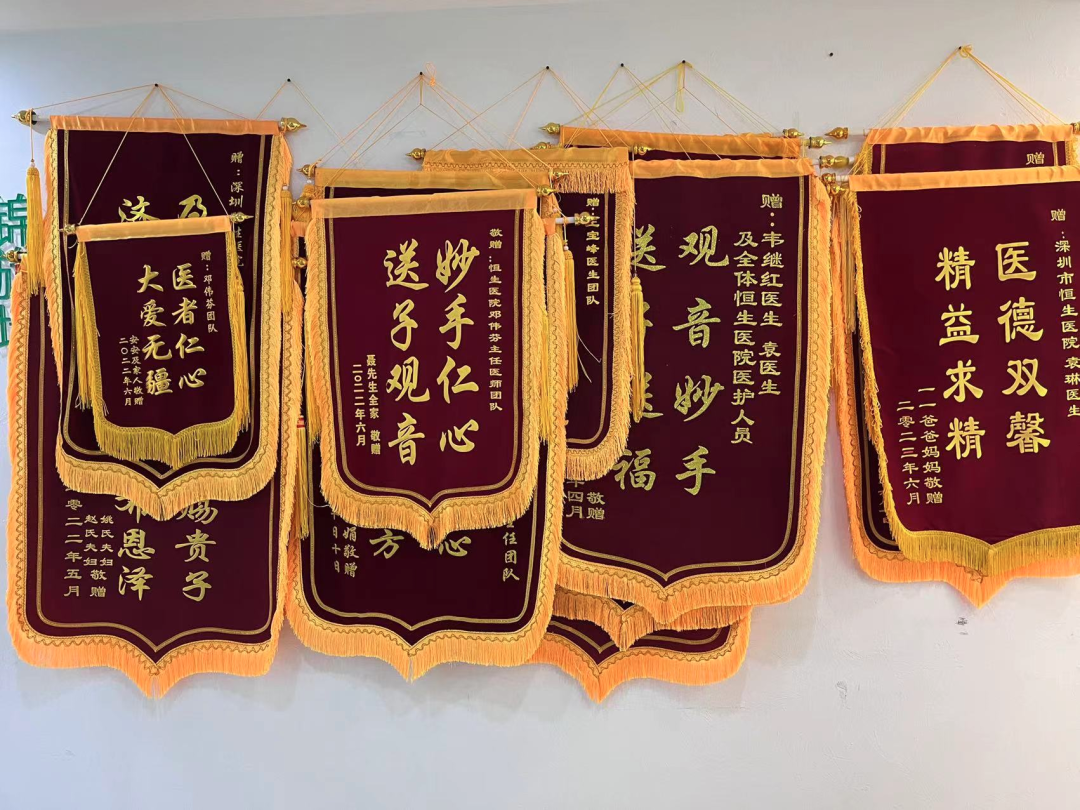 赠:深圳
赠:邓伟芬团队
医者仁心
大爱无疆
安安及家人敬赠
二〇二二年六月
赐贵子
恩泽
姚氏夫妇
赵氏夫妇 敬赠
零二二年五月
敬赠:恒生医院邓伟芬主任医师团队
妙手仁心
送子观音
聂先生全家 敬赠
二〇二二年六月
任团队
心
方
娟敬赠
十日
王宝峰医生团队
敬赠
年四月
赠:韦继红医生 袁医生
及全体恒生医院医护人员
观音妙手
送福
赠
赠:深圳市恒生医院 袁琳医生
医德双馨
精益求精
一一爸爸妈妈敬赠
二〇二三年六月